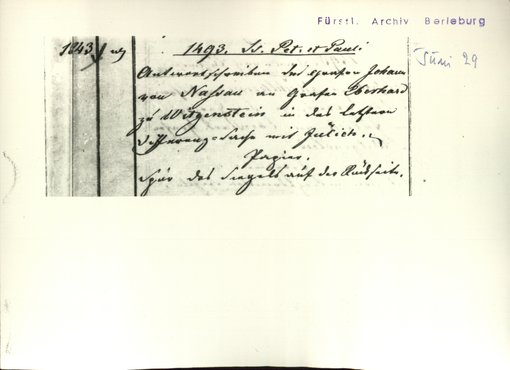 Fürstl. Archiv Berleburg
1243
1493. Ss. Pet. et Pauli
Juni 29
Antwortschreiben des Grafen Johann
von Nassau an Grafen Eberhard
zu Witgenstein in des letztern
Differenz-Sache mit Jülich.
Papier.
Spur des Siegels auf der Rückseite.